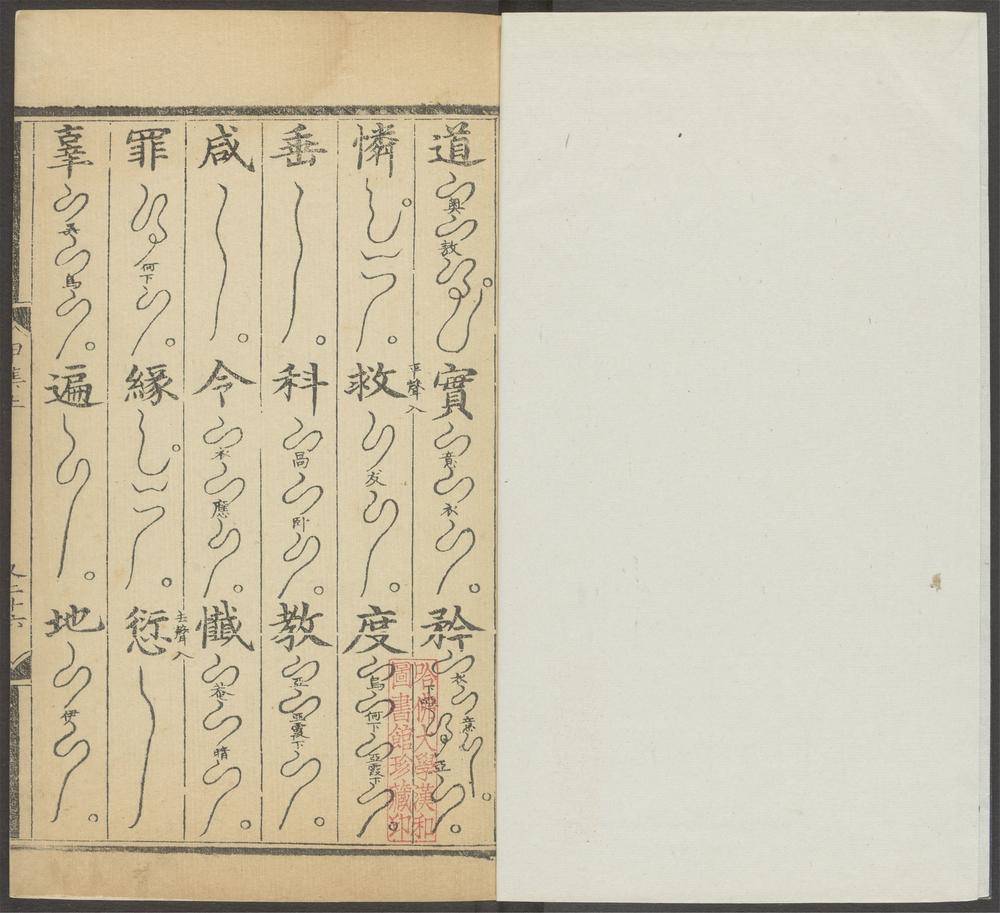 道 奥 敖 實 意 衣 矜 衣 意 亞
憐 平聲入 救 友 度 烏 何下 亞霞下
垂 科 咼 卧 教 亞 亞霞下
咸 令 衣 應 懺 菴 暗
罪 何下 緣 去聲入 愆
辜 烏 遍 地 伊
哈佛大學漢和
圖書館珍藏印